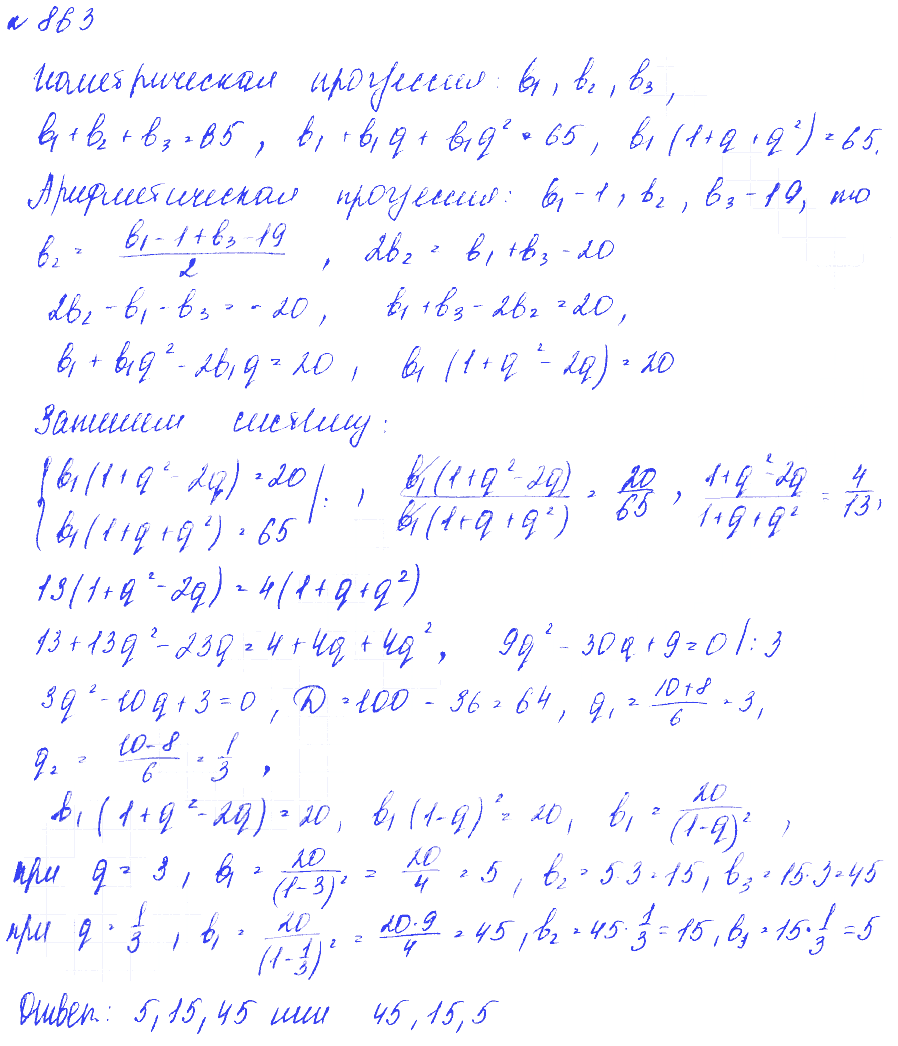 № 863
Геометрическая прогрессия: b₁, b₂, b₃,
b₁ + b₂ + b₃ = 65, b₁ + b₁q + b₁q² = 65, b₁(1+q+q²) = 65.
Арифметическая прогрессия: b₁-1, b₂, b₃-19, то
b₂ = (b₁-1+b₃-19)/2, 2b₂ = b₁+b₃-20
2b₂ - b₁ - b₃ = -20, b₁+b₃-2b₂ = 20,
b₁ + b₁q² - 2b₁q = 20, b₁(1+q²-2q) = 20
Запишем систему:
{b₁(1+q²-2q) = 20
{b₁(1+q+q²) = 65 |:, b₁(1+q²-2q)/b₁(1+q+q²) = 20/65, (1+q²-2q)/(1+q+q²) = 4/13,
13(1+q²-2q) = 4(1+q+q²)
13+13q²-23q = 4+4q+4q², 9q²-30q+9=0 |:3
3q²-10q+3=0, D=100-36=64, q₁ = (10+8)/6 = 3,
q₂ = (10-8)/6 = 1/3,
b₁(1+q²-2q) = 20, b₁(1-q)² = 20, b₁ = 20/(1-q)²,
при q = 3, b₁ = 20/(1-3)² = 20/4 = 5, b₂ = 5·3 = 15, b₃ = 15·3 = 45
при q = 1/3, b₁ = 20/(1-1/3)² = 20·9/4 = 45, b₂ = 45·1/3 = 15, b₃ = 15·1/3 = 5
Ответ: 5, 15, 45 или 45, 15, 5